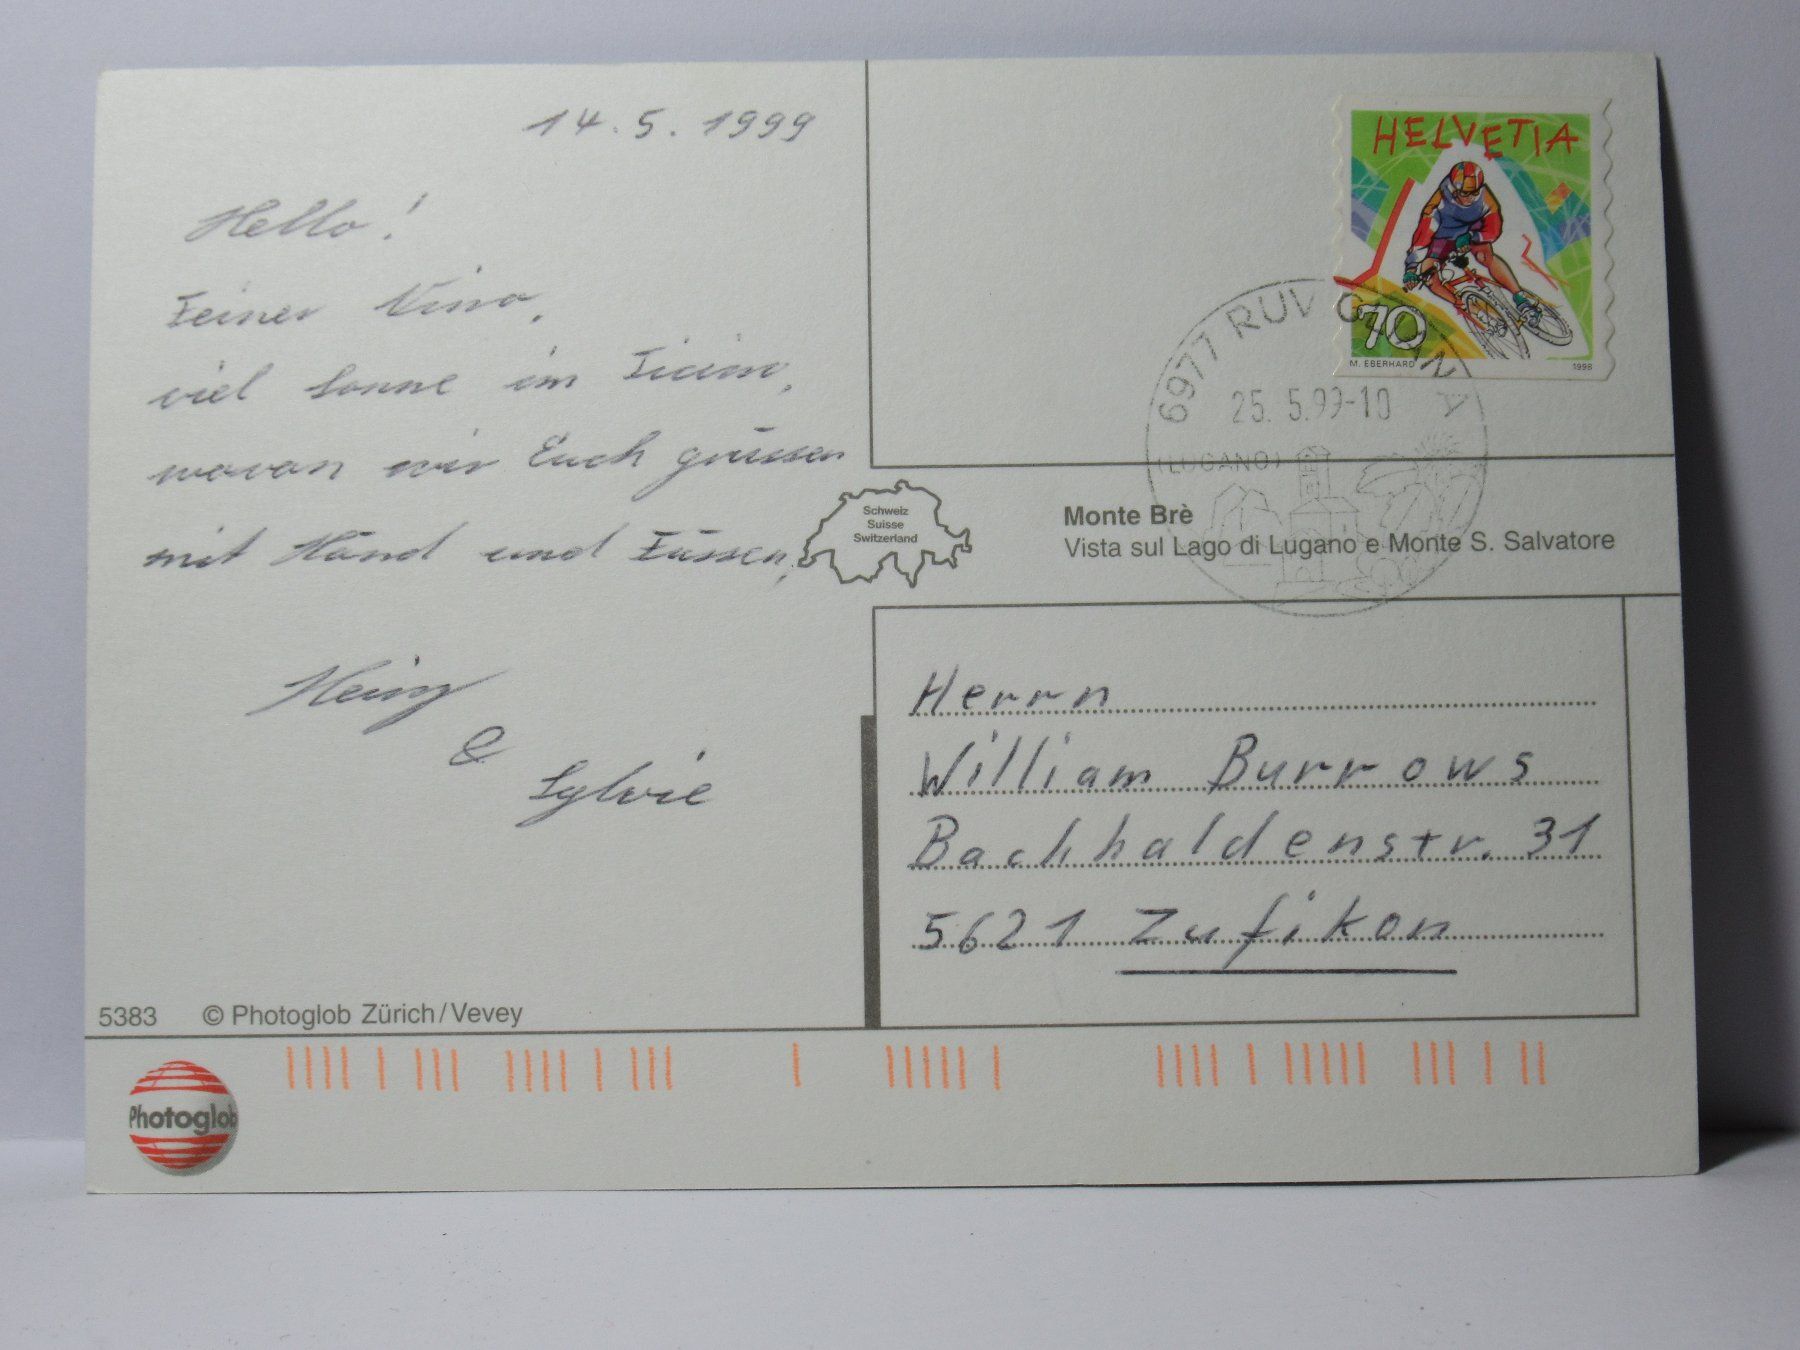 14.5.1999
Hello!
Feiner Vino,
viel Sonne im Ticino,
wovon wir Euch grüssen
mit Händ und Füssen,
Heinz
&
Sylvie
5383 © Photoglob Zürich/Vevey
Photoglob
HELVETIA
70
M. EBERHARD 1998
6977 RUVIGLIANA
25.5.99-10
(LUGANO)
Schweiz
Suisse
Switzerland
Monte Brè
Vista sul Lago di Lugano e Monte S. Salvatore
Herrn
William Burrows
Bachhaldenstr. 31
5621 Zufikon